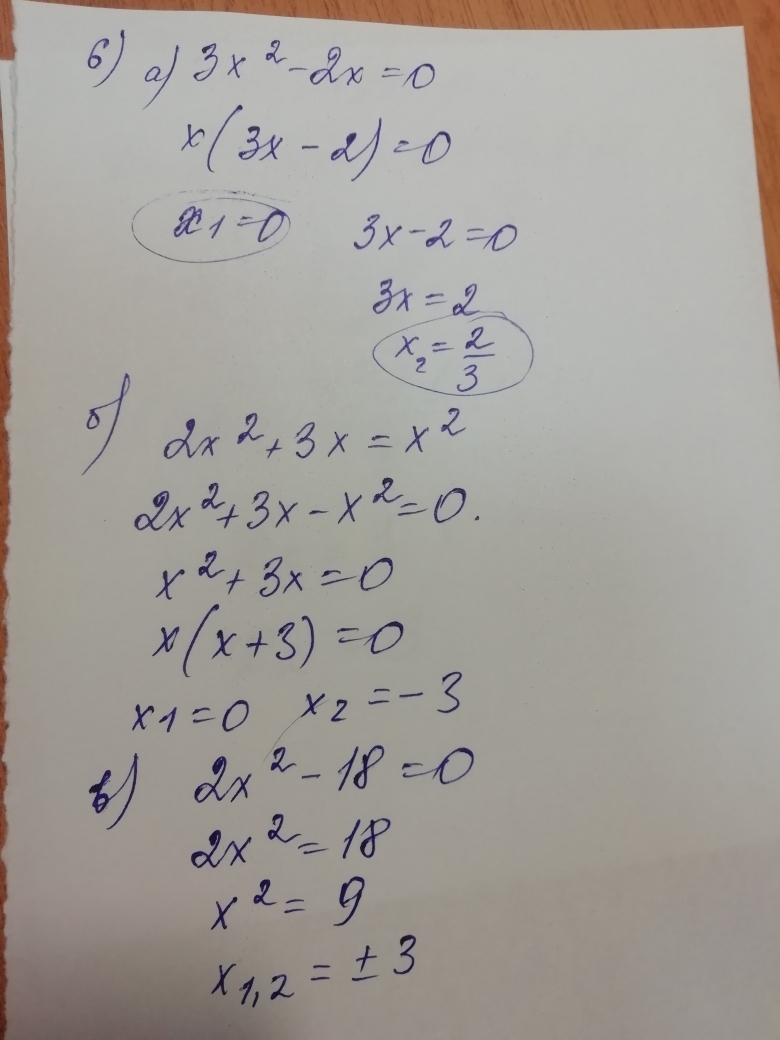 6) а) 3x² - 2x = 0
x(3x - 2) = 0
x1 = 0 3x - 2 = 0
3x = 2
x₂ = 2/3
б) 2x² + 3x = x²
2x² + 3x - x² = 0.
x² + 3x = 0
x(x + 3) = 0
x1 = 0 x₂ = - 3
в) 2x² - 18 = 0
2x² = 18
x² = 9
x₁,₂ = ± 3